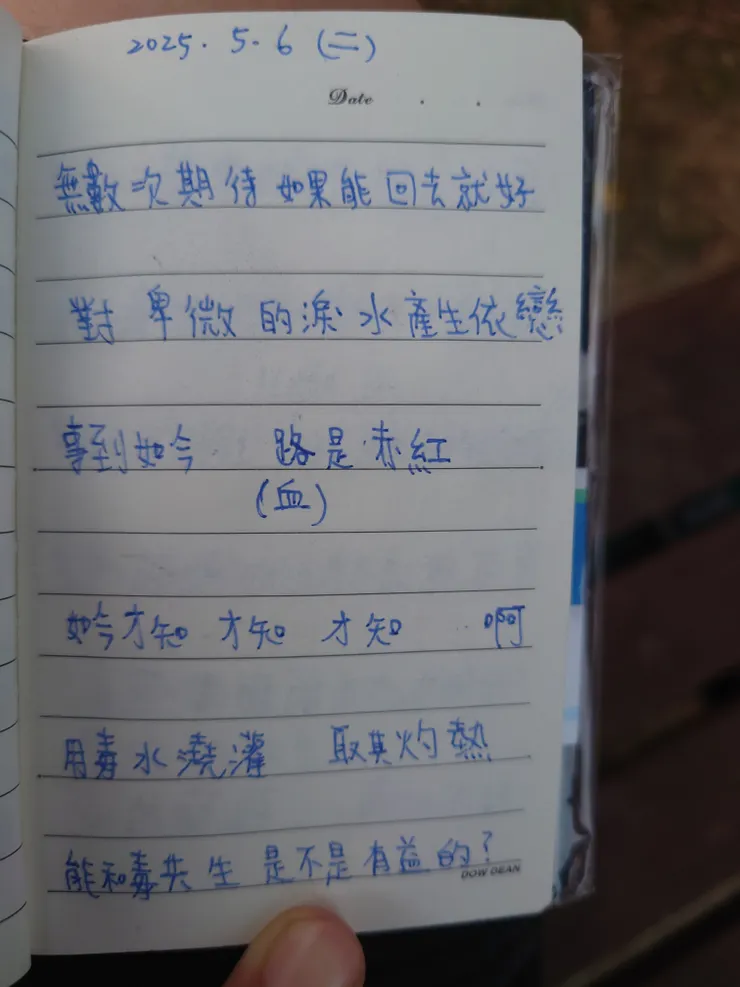 2025.5.6（二）
Date . .
無數次期待 如果能回去就好
對 卑微 的淚水產生依戀
事到如今 路是赤紅
（血）
如今才知 才知 才知 啊
用毒水澆灌 取其灼熱
能和毒共生 是不是有益的？
DOW DEAN